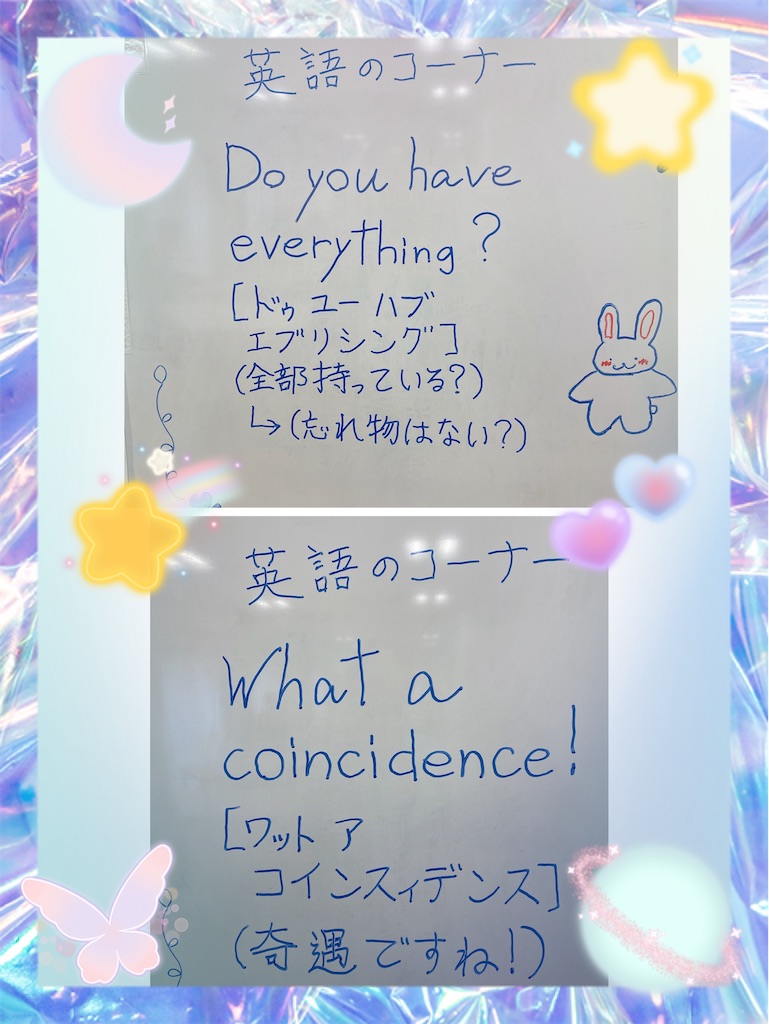 英語のコーナー
Do you have
everything?
[ドゥ ユー ハブ
エブリシング]
(全部持っている?)
↳(忘れ物はない?)
英語のコーナー
What a
coincidence!
[ワット ア
コインスィデンス]
(奇遇ですね!)